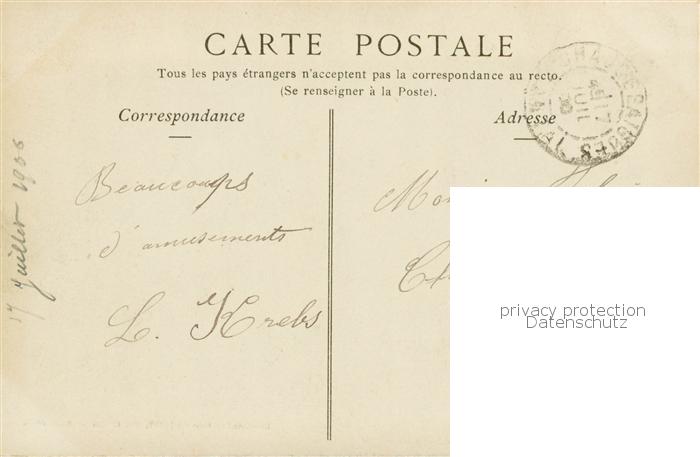 CARTE POSTALE
Tous les pays étrangers n'acceptent pas la correspondance au recto.
(Se renseigner à la Poste).
Correspondance
Adresse
17 Juillet 1906
Beaucoups
d'amusements
L. Krebs
privacy protection
Datenschutz